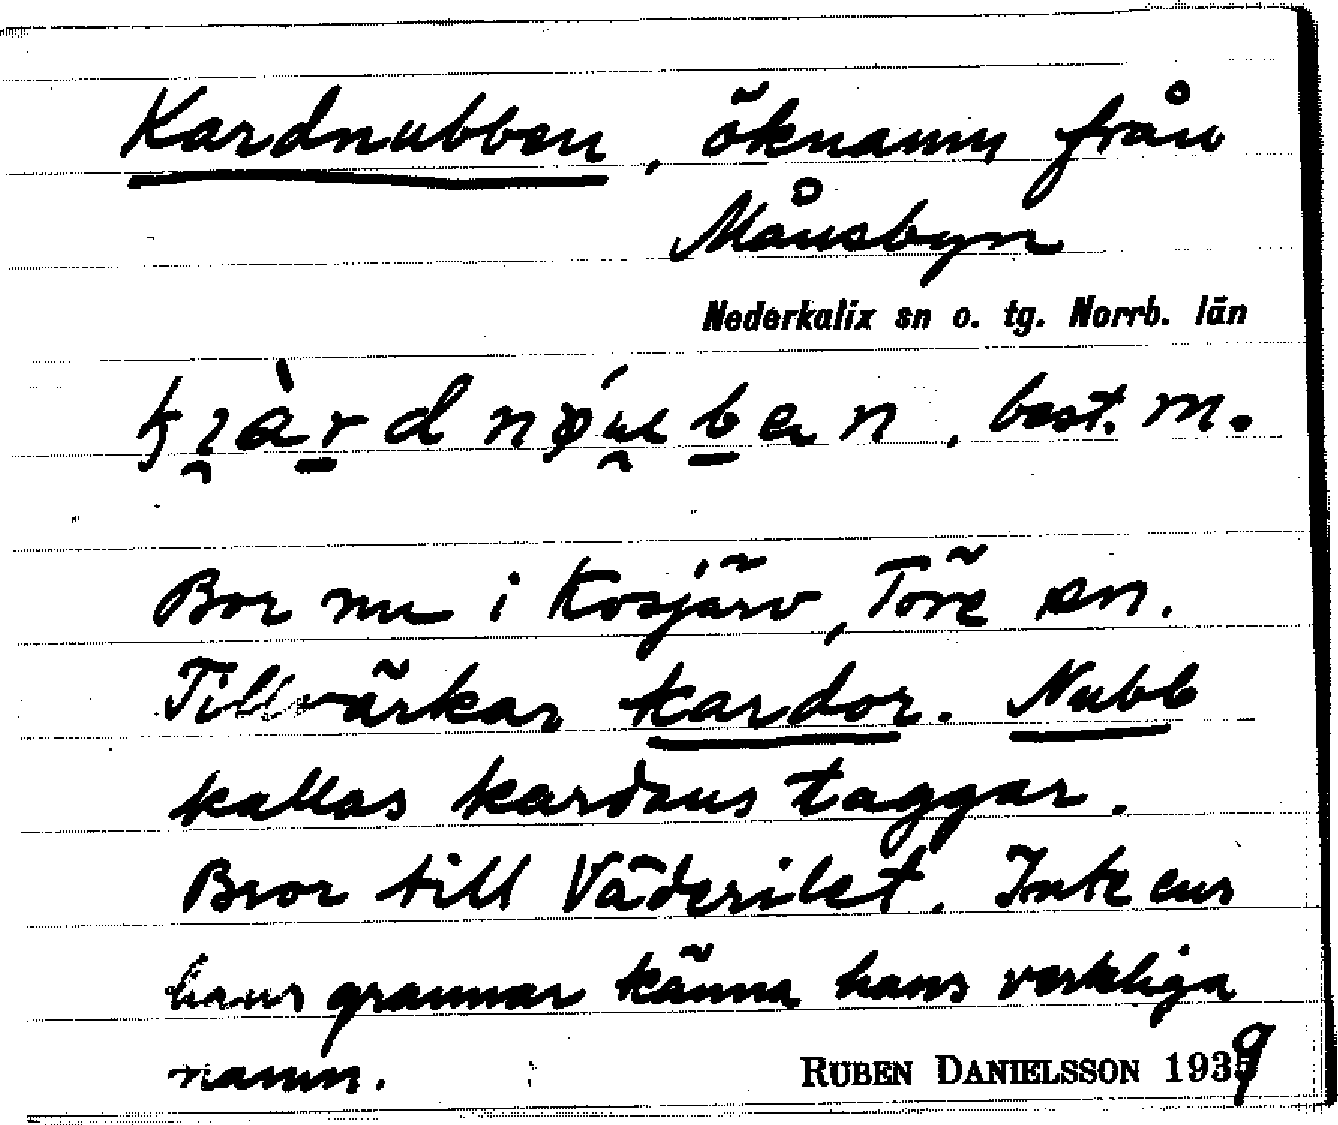 Kardnubben, öknamn från
Månsbyn
Nederkalix sn o. tg. Norrb. län
best. m.
Bor nu i Kosjärv, Töre sn.
Tillvärkar kardor. Nubb
kallas kardans taggar.
Bror till Väderilet. Inte ens
hans grannar känna hans verkliga
namn.
RUBEN DANIELSSON 1939